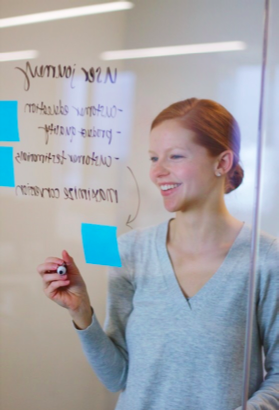 user journey
- customer education
- product quality
- customer testimonials
maximize conversion